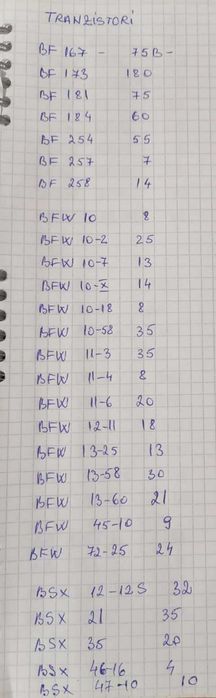 TRANZISTORI
BF 167 - 75B-
BF 173 180
BF 181 75
BF 184 60
BF 254 55
BF 257 7
BF 258 14
BFW 10 8
BFW 10-2 25
BFW 10-7 13
BFW 10-X 14
BFW 10-18 8
BFW 10-58 35
BFW 11-3 35
BFW 11-4 8
BFW 11-6 20
BFW 12-11 18
BFW 13-25 13
BFW 13-58 30
BFW 13-60 21
BFW 45-10 9
BFW 72-25 24
BSX 12-12S 32
BSX 21 35
BSX 35 20
BSX 46-16 4
BSX 47-10 10